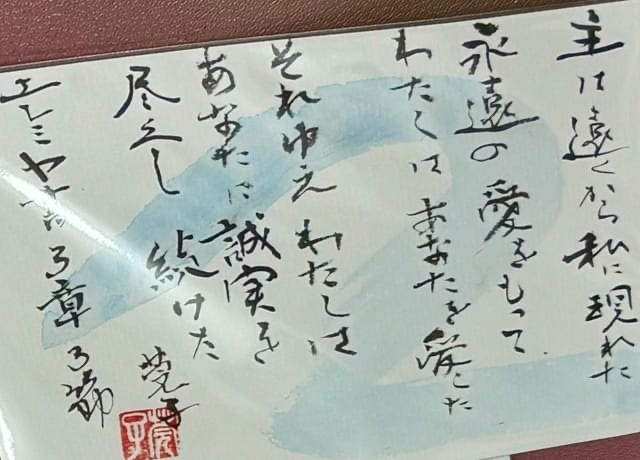 主は遠くから私に現れた
永遠の愛をもって
わたしはあなたを愛した
それゆえ わたしは
あなたに誠実を
尽くし 続けた
エレミヤ書 3章 3節